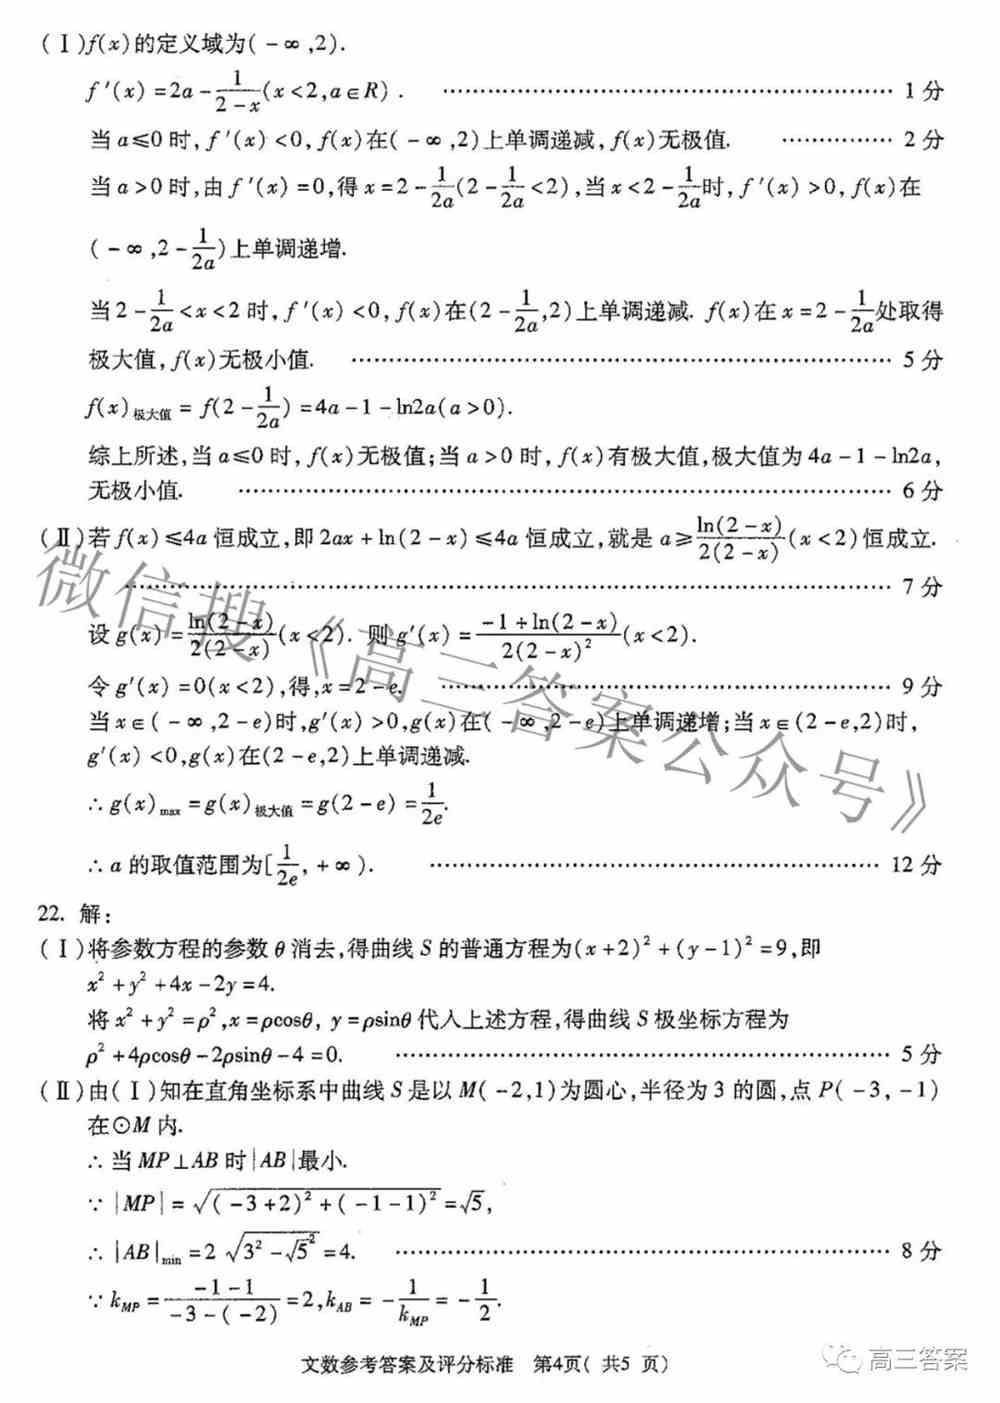 (Ⅰ)f(x)的定义域为(-∞,2).
f′(x)=2a-1/(2-x)(x<2,a∈R). ……………… 1分
当a≤0时,f′(x)<0,f(x)在(-∞,2)上单调递减,f(x)无极值. ……………… 2分
当a>0时,由f′(x)=0,得x=2-1/(2a)(2-1/(2a)<2),当x<2-1/(2a)时,f′(x)>0,f(x)在
(-∞,2-1/(2a))上单调递增.
当2-1/(2a)<x<2时,f′(x)<0,f(x)在(2-1/(2a),2)上单调递减. f(x)在x=2-1/(2a)处取得
极大值,f(x)无极小值. ……………… 5分
f(x)极大值=f(2-1/(2a))=4a-1-ln2a(a>0).
综上所述,当a≤0时,f(x)无极值;当a>0时,f(x)有极大值,极大值为4a-1-ln2a,
无极小值. ……………… 6分
(Ⅱ)若f(x)≤4a恒成立,即2ax+ln(2-x)≤4a恒成立,就是a≥ln(2-x)/(2(2-x))(x<2)恒成立.
……………… 7分
设g(x)=ln(2-x)/(2(2-x))(x<2). 则g′(x)=(-1+ln(2-x))/(2(2-x)²)(x<2).
令g′(x)=0(x<2),得,x=2-e. ……………… 9分
当x∈(-∞,2-e)时,g′(x)>0,g(x)在(-∞,2-e)上单调递增;当x∈(2-e,2)时,
g′(x)<0,g(x)在(2-e,2)上单调递减.
∴g(x)max=g(x)极大值=g(2-e)=1/(2e).
∴a的取值范围为[1/(2e),+∞). ……………… 12分
22. 解:
(Ⅰ)将参数方程的参数θ消去,得曲线S的普通方程为(x+2)²+(y-1)²=9,即
x²+y²+4x-2y=4.
将x²+y²=ρ²,x=ρcosθ, y=ρsinθ代入上述方程,得曲线S极坐标方程为
ρ²+4ρcosθ-2ρsinθ-4=0. ……………… 5分
(Ⅱ)由(Ⅰ)知在直角坐标系中曲线S是以M(-2,1)为圆心,半径为3的圆,点P(-3,-1)
在⊙M内.
∴当MP⊥AB时|AB|最小.
∵|MP|=√((-3+2)²+(-1-1)²)=√5,
∴|AB|min=2√(3²-√5²)=4. ……………… 8分
∵kMP=(-1-1)/(-3-(-2))=2,kAB=-1/kMP=-1/2.
文数参考答案及评分标准 第4页(共5 页)
微信搜《高三答案公众号》
高三答案